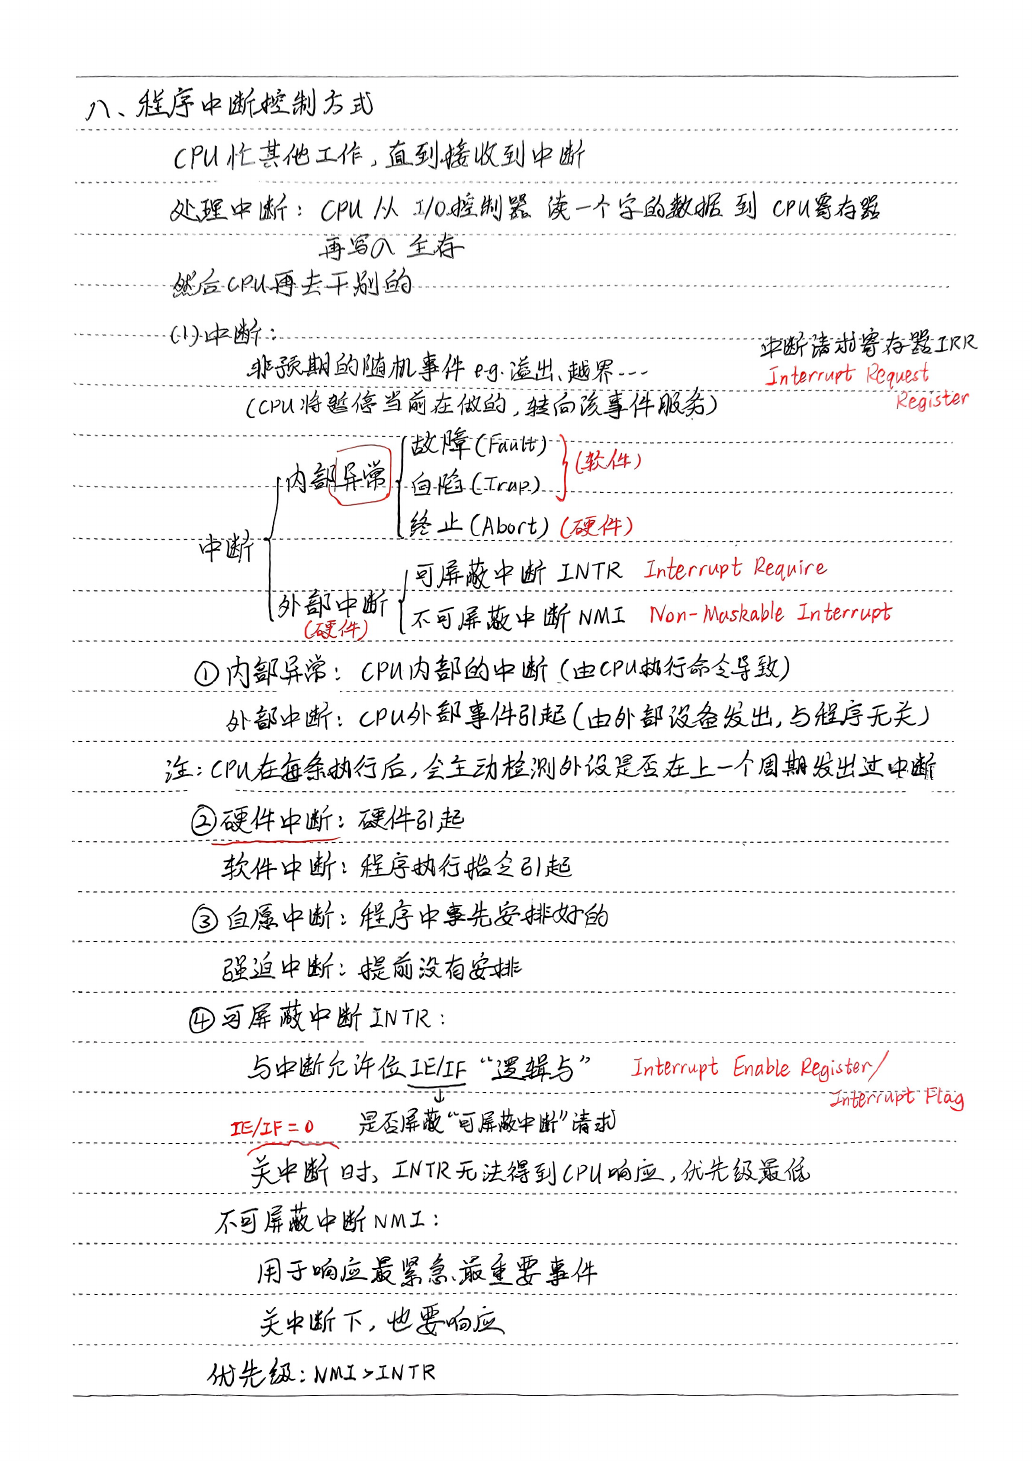 八、程序中断控制方式
CPU忙其他工作,直到接收到中断
处理中断: CPU 从 I/O控制器 读一个字的数据 到 CPU寄存器
再写入 主存
然后CPU再去干别的
(1)中断:
中断请求寄存器IRR
非预期的随机事件 e.g. 溢出、越界...
Interrupt Request
Register
(CPU将暂停当前在做的,转向该事件服务)
故障(Fault)
内部异常 自陷(Trap) (软件)
终止(Abort) (硬件)
中断
可屏蔽中断 INTR Interrupt Require
外部中断 不可屏蔽中断 NMI Non-Maskable Interrupt
(硬件)
①内部异常: CPU内部的中断(由CPU执行命令导致)
外部中断: CPU外部事件引起(由外部设备发出,与程序无关)
注:CPU在每条执行后,会主动检测外设是否在上一个周期发出过中断
②硬件中断: 硬件引起
软件中断: 程序执行指令引起
③自愿中断: 程序中事先安排好的
强迫中断: 提前没有安排
④可屏蔽中断INTR:
与中断允许位IE/IF “逻辑与” Interrupt Enable Register/
Interrupt Flag
↓
IE/IF=0 是否屏蔽“可屏蔽中断”请求
关中断时、INTR无法得到CPU响应,优先级最低
不可屏蔽中断NMI:
用于响应最紧急、最重要事件
关中断下,也要响应
优先级:NMI>INTR